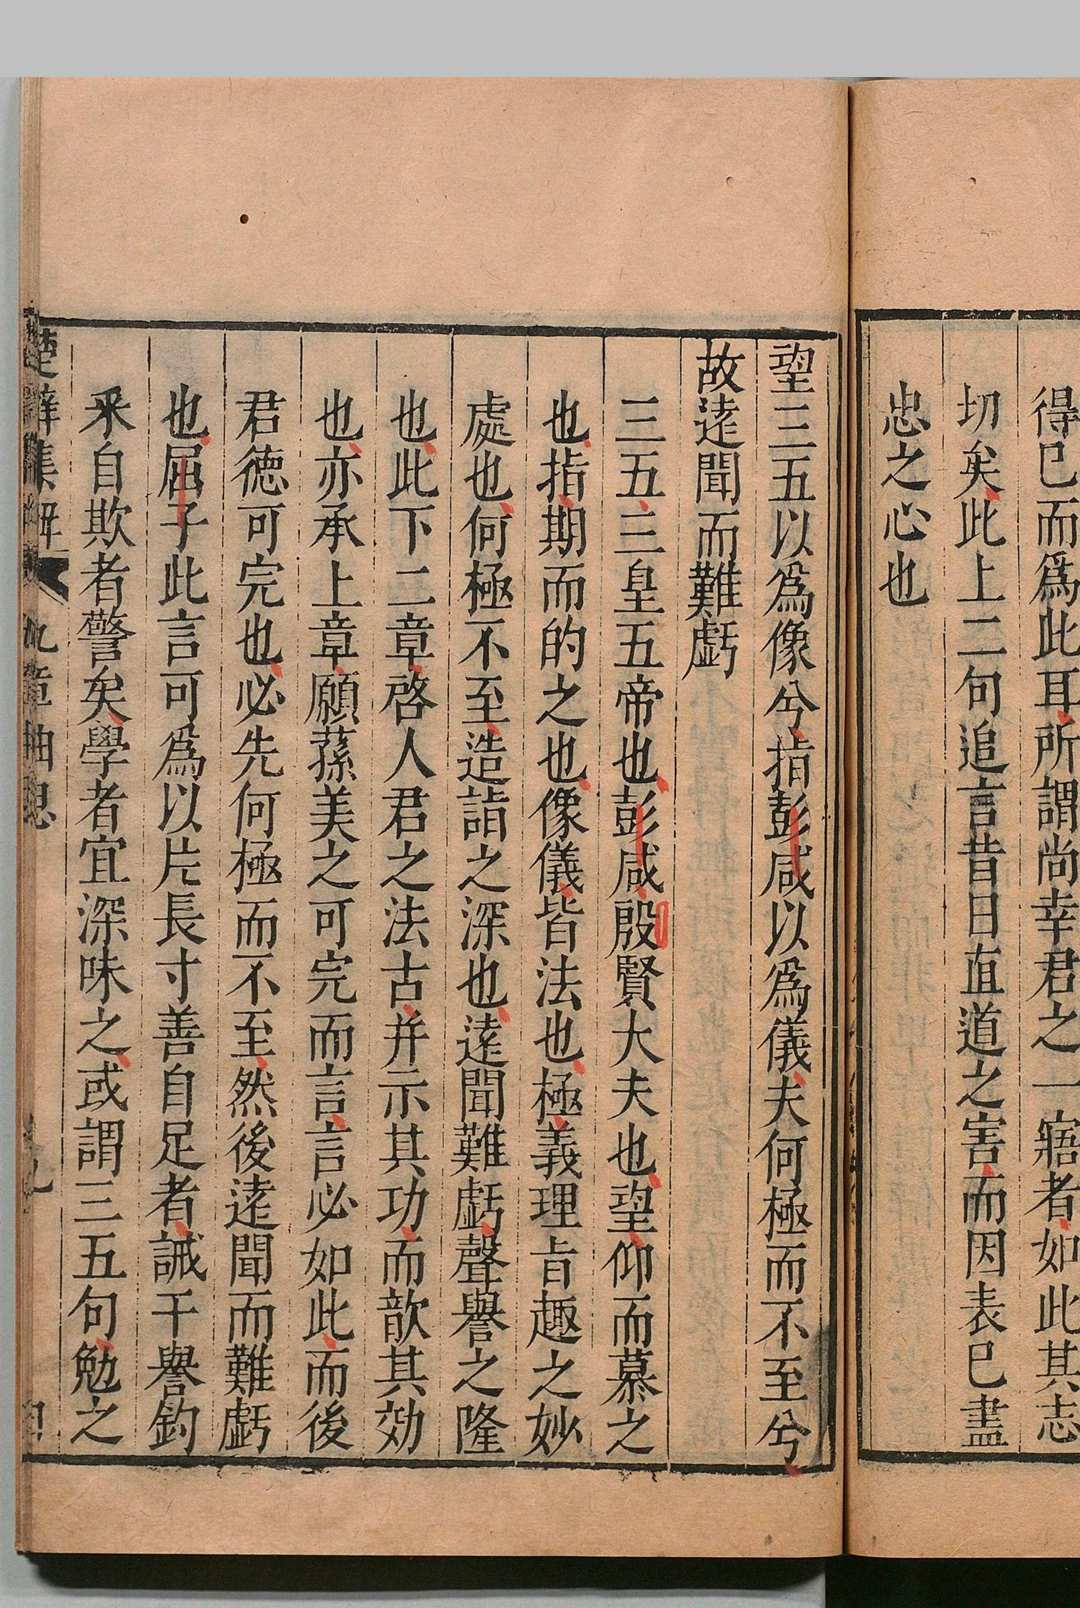 得已而爲此耳所謂尚幸君之一寤者如此其志
切矣此上二句追言昔日直道之害而因表已盡
忠之心也
望三五以爲像兮指彭咸以爲儀夫何極而不至兮
故遠聞而難虧
三五三皇五帝也彭咸殷賢大夫也望仰而慕之
也指期而的之也像儀皆法也極義理旨趣之妙
處也何極不至造詣之深也遠聞難虧聲譽之隆
也此下二章啓人君之法古并示其功而歆其効
也亦承上章願蓀美之可完而言言必如此而後
君德可完也必先何極而不至然後遠聞而難虧
也屈子此言可爲以片長寸善自足者誡干譽釣
采自欺者警矣學者宜深味之或謂三五句勉之
楚辭集解 九章抽思